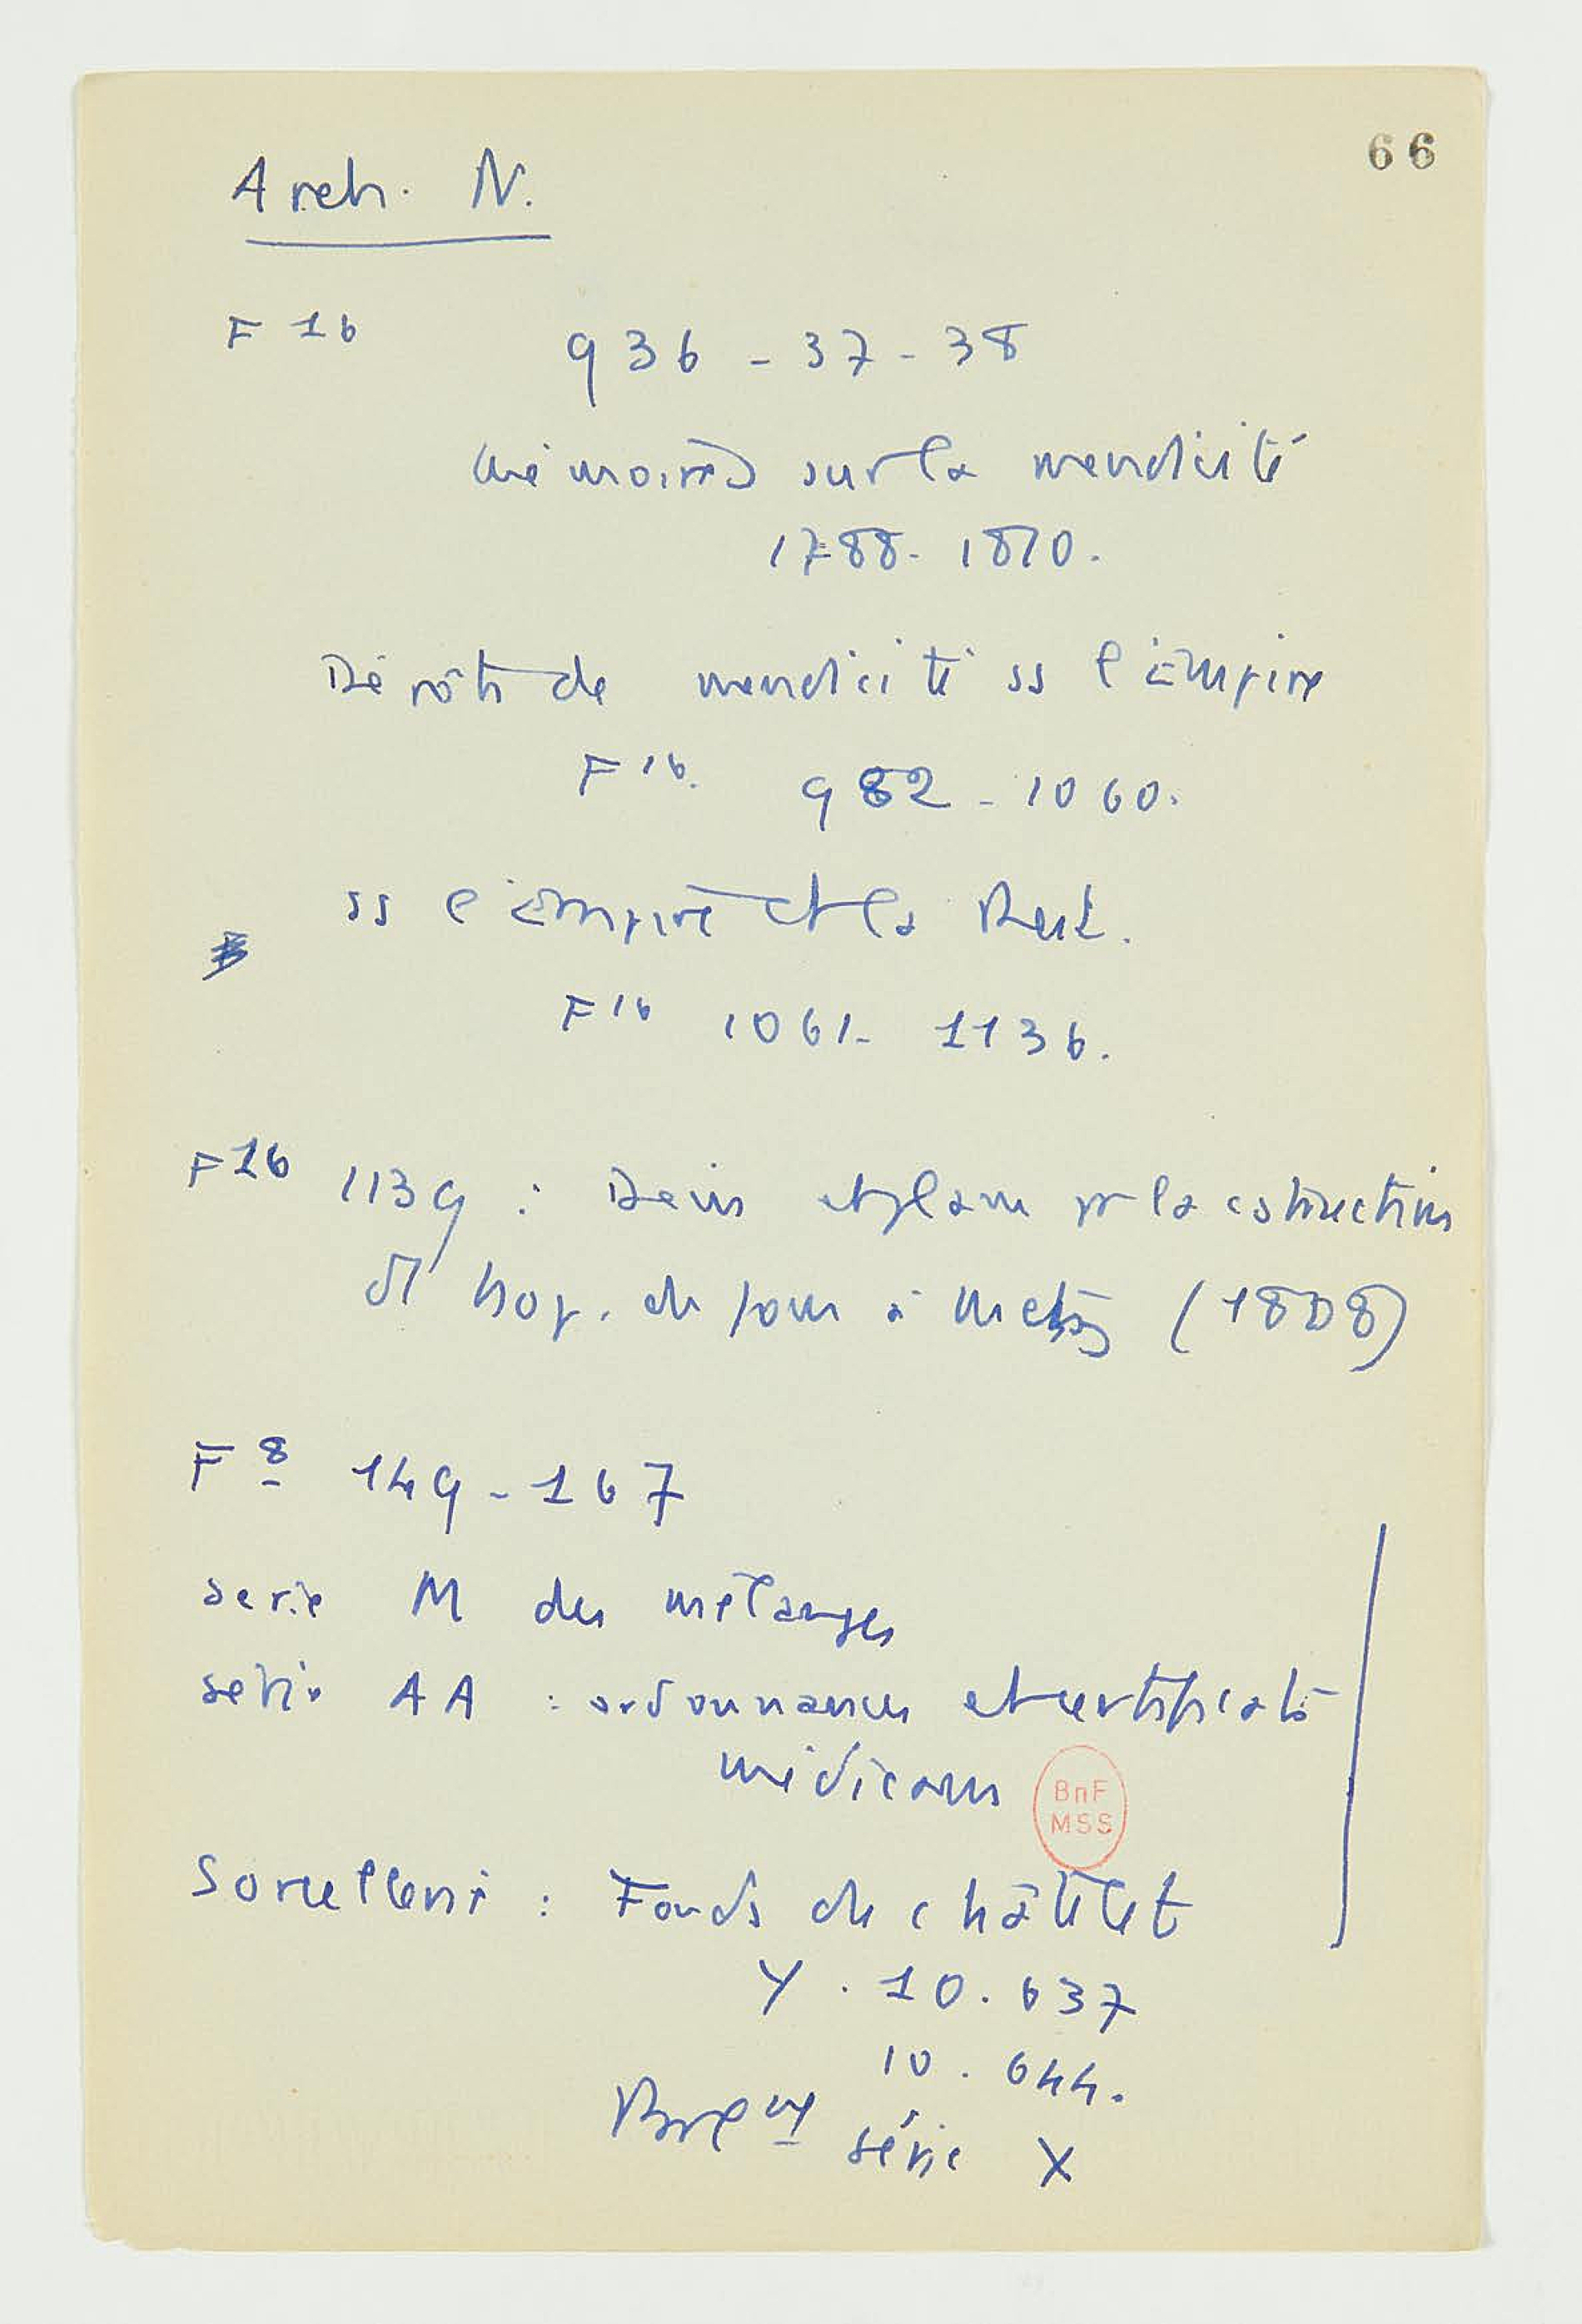 66
Arch. N.
F 16 936 - 37 - 38
Mémoires sur la mendicité
1788 - 1810.
Dépôts de mendicité ss l'Empire
F 16. 982 - 1060.
ss l'Empire et la Rest.
F 16 1061 - 1136.
F 16 1139 : Devis et plans pr la cstruction
d' hop. de fous à Metz (1808)
F 8 149 - 167
serie M des mélanges
série AA : ordonnances et certificats
médicaux
BnF
MSS
Sorcellerie : Fonds du châtelet
Y . 10. 637
10. 644.
série X